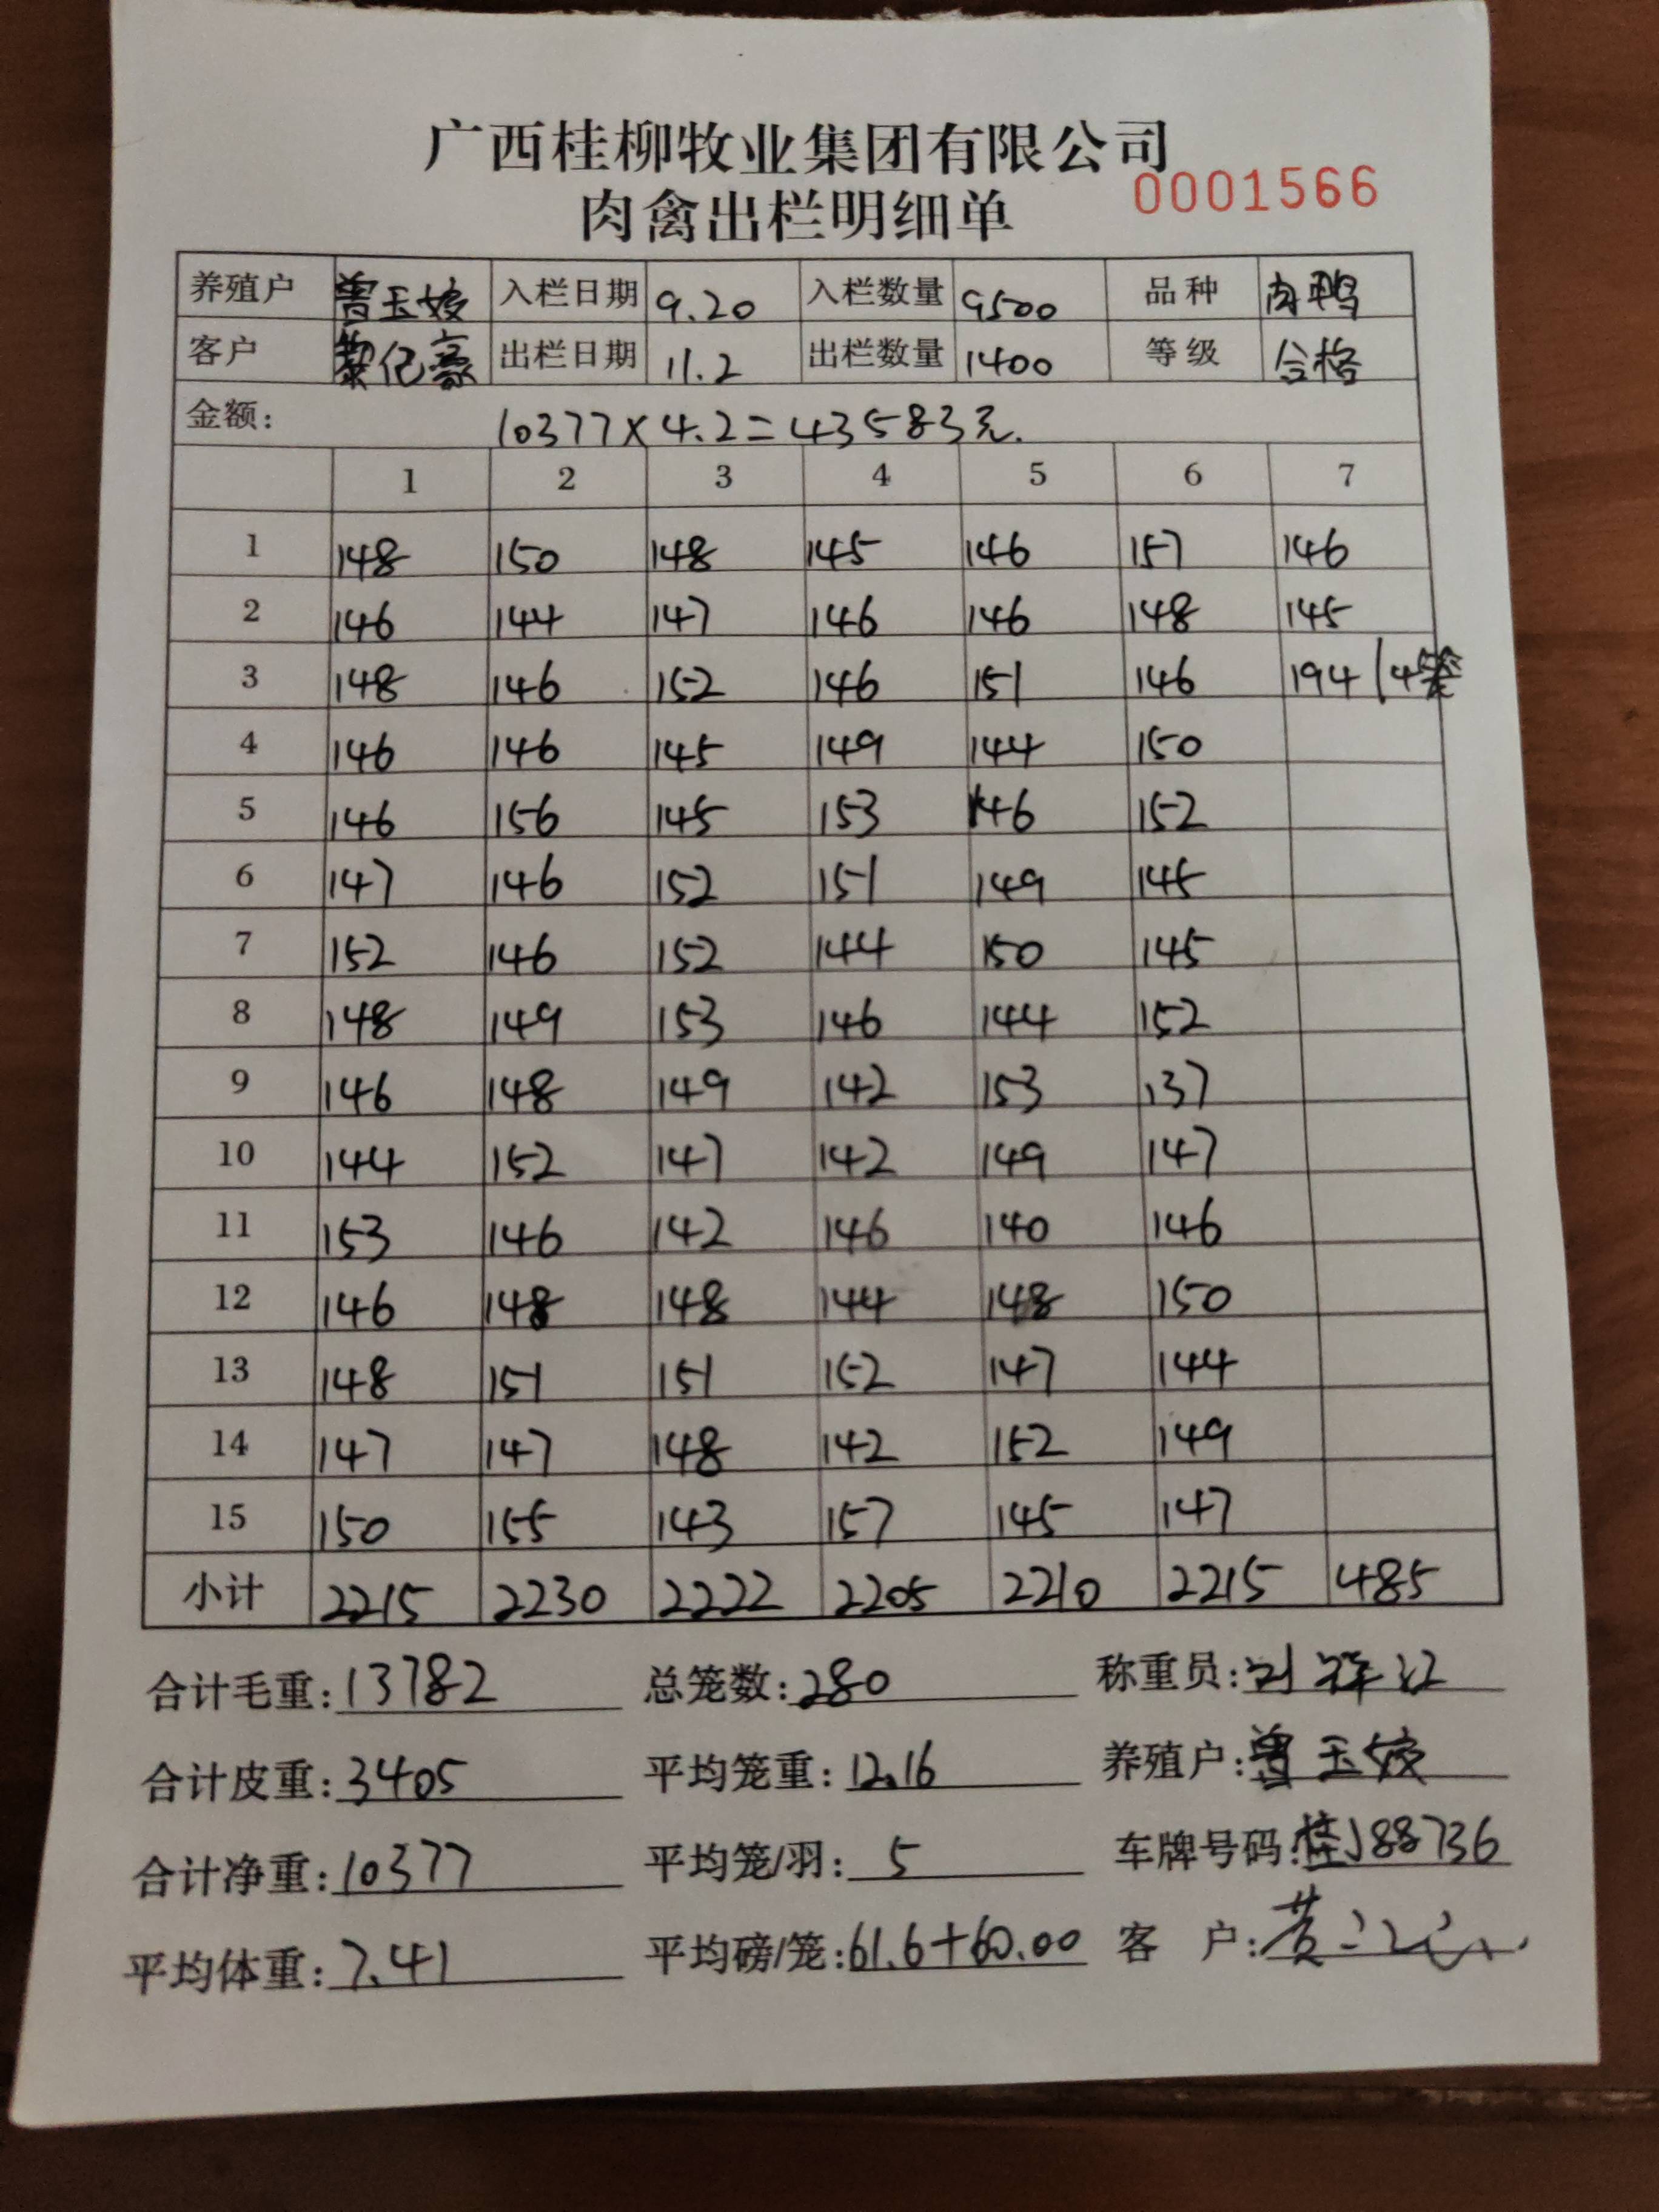 广西桂柳牧业集团有限公司
肉禽出栏明细单 0001566
养殖户 曾玉姣 入栏日期 9.20 入栏数量 9500 品种 肉鸭
客户 黎亿豪 出栏日期 11.2 出栏数量 1400 等级 合格
金额: 10377×4.2=43583元.
1 2 3 4 5 6 7
1 148 150 148 145 146 157 146
2 146 144 147 146 146 148 145
3 148 146 152 146 151 146 194/4笼
4 146 146 145 149 144 150
5 146 156 145 153 146 152
6 147 146 152 151 149 145
7 152 146 152 144 150 145
8 148 149 153 146 144 152
9 146 148 149 142 153 137
10 144 152 147 142 149 147
11 153 146 142 146 140 146
12 146 148 148 144 148 150
13 148 151 151 152 147 144
14 147 147 148 142 152 149
15 150 155 143 157 145 147
小计 2215 2230 2222 2205 2210 2215 485
合计毛重:13782 总笼数:280 称重员:刘祥江
合计皮重:3405 平均笼重:12.16 养殖户:曾玉姣
合计净重:10377 平均笼/羽:5 车牌号码:桂J88736
平均体重:7.41 平均磅/笼:61.6+60.00 客 户:黄